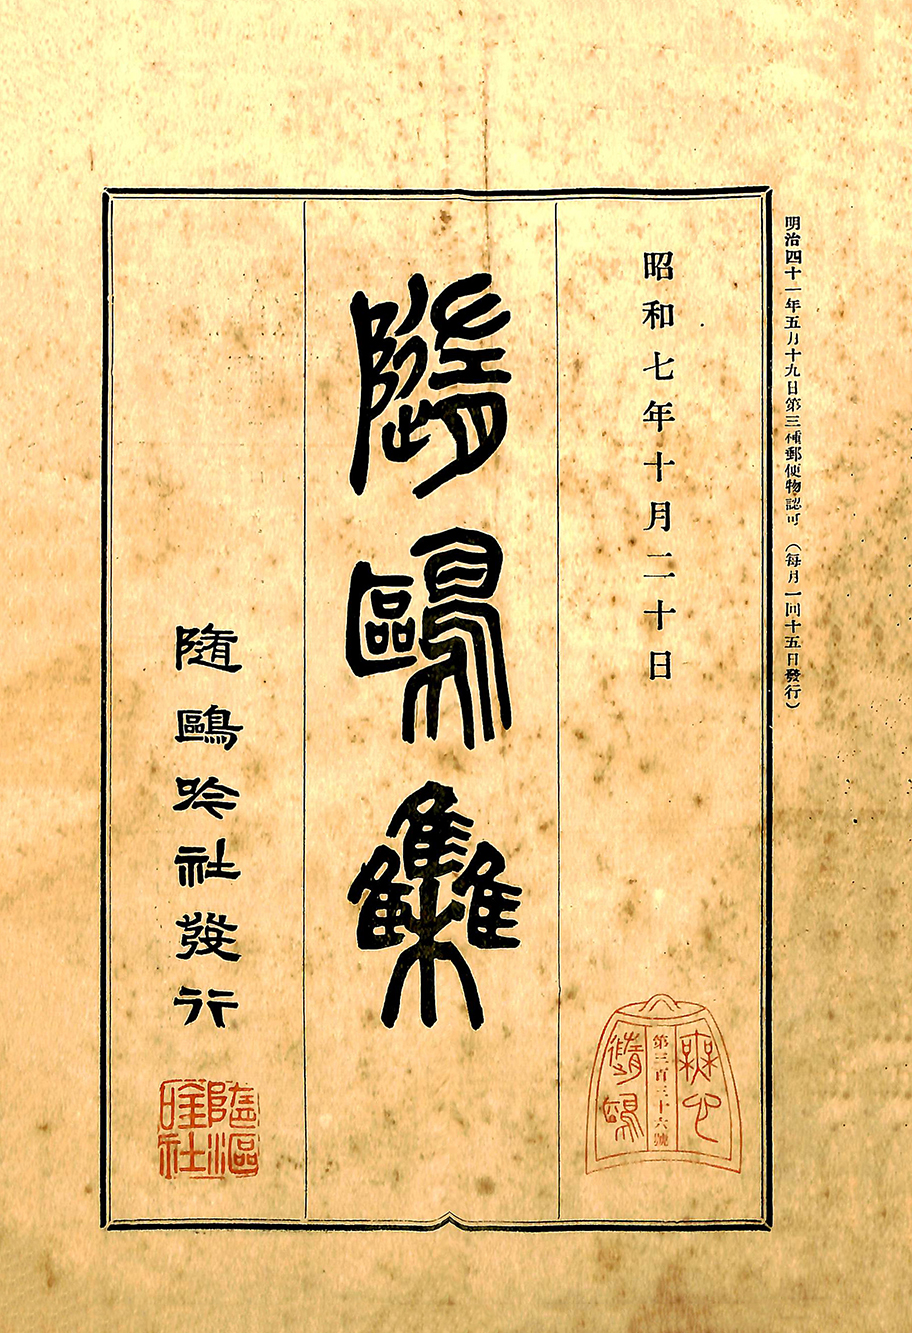 明治四十一年五月十九日第三種郵便物認可（每月一回十五日發行）
昭和七年十月二十日
無心
第三百三十六號
隨鷗
隨鷗集
隨鷗吟社發行